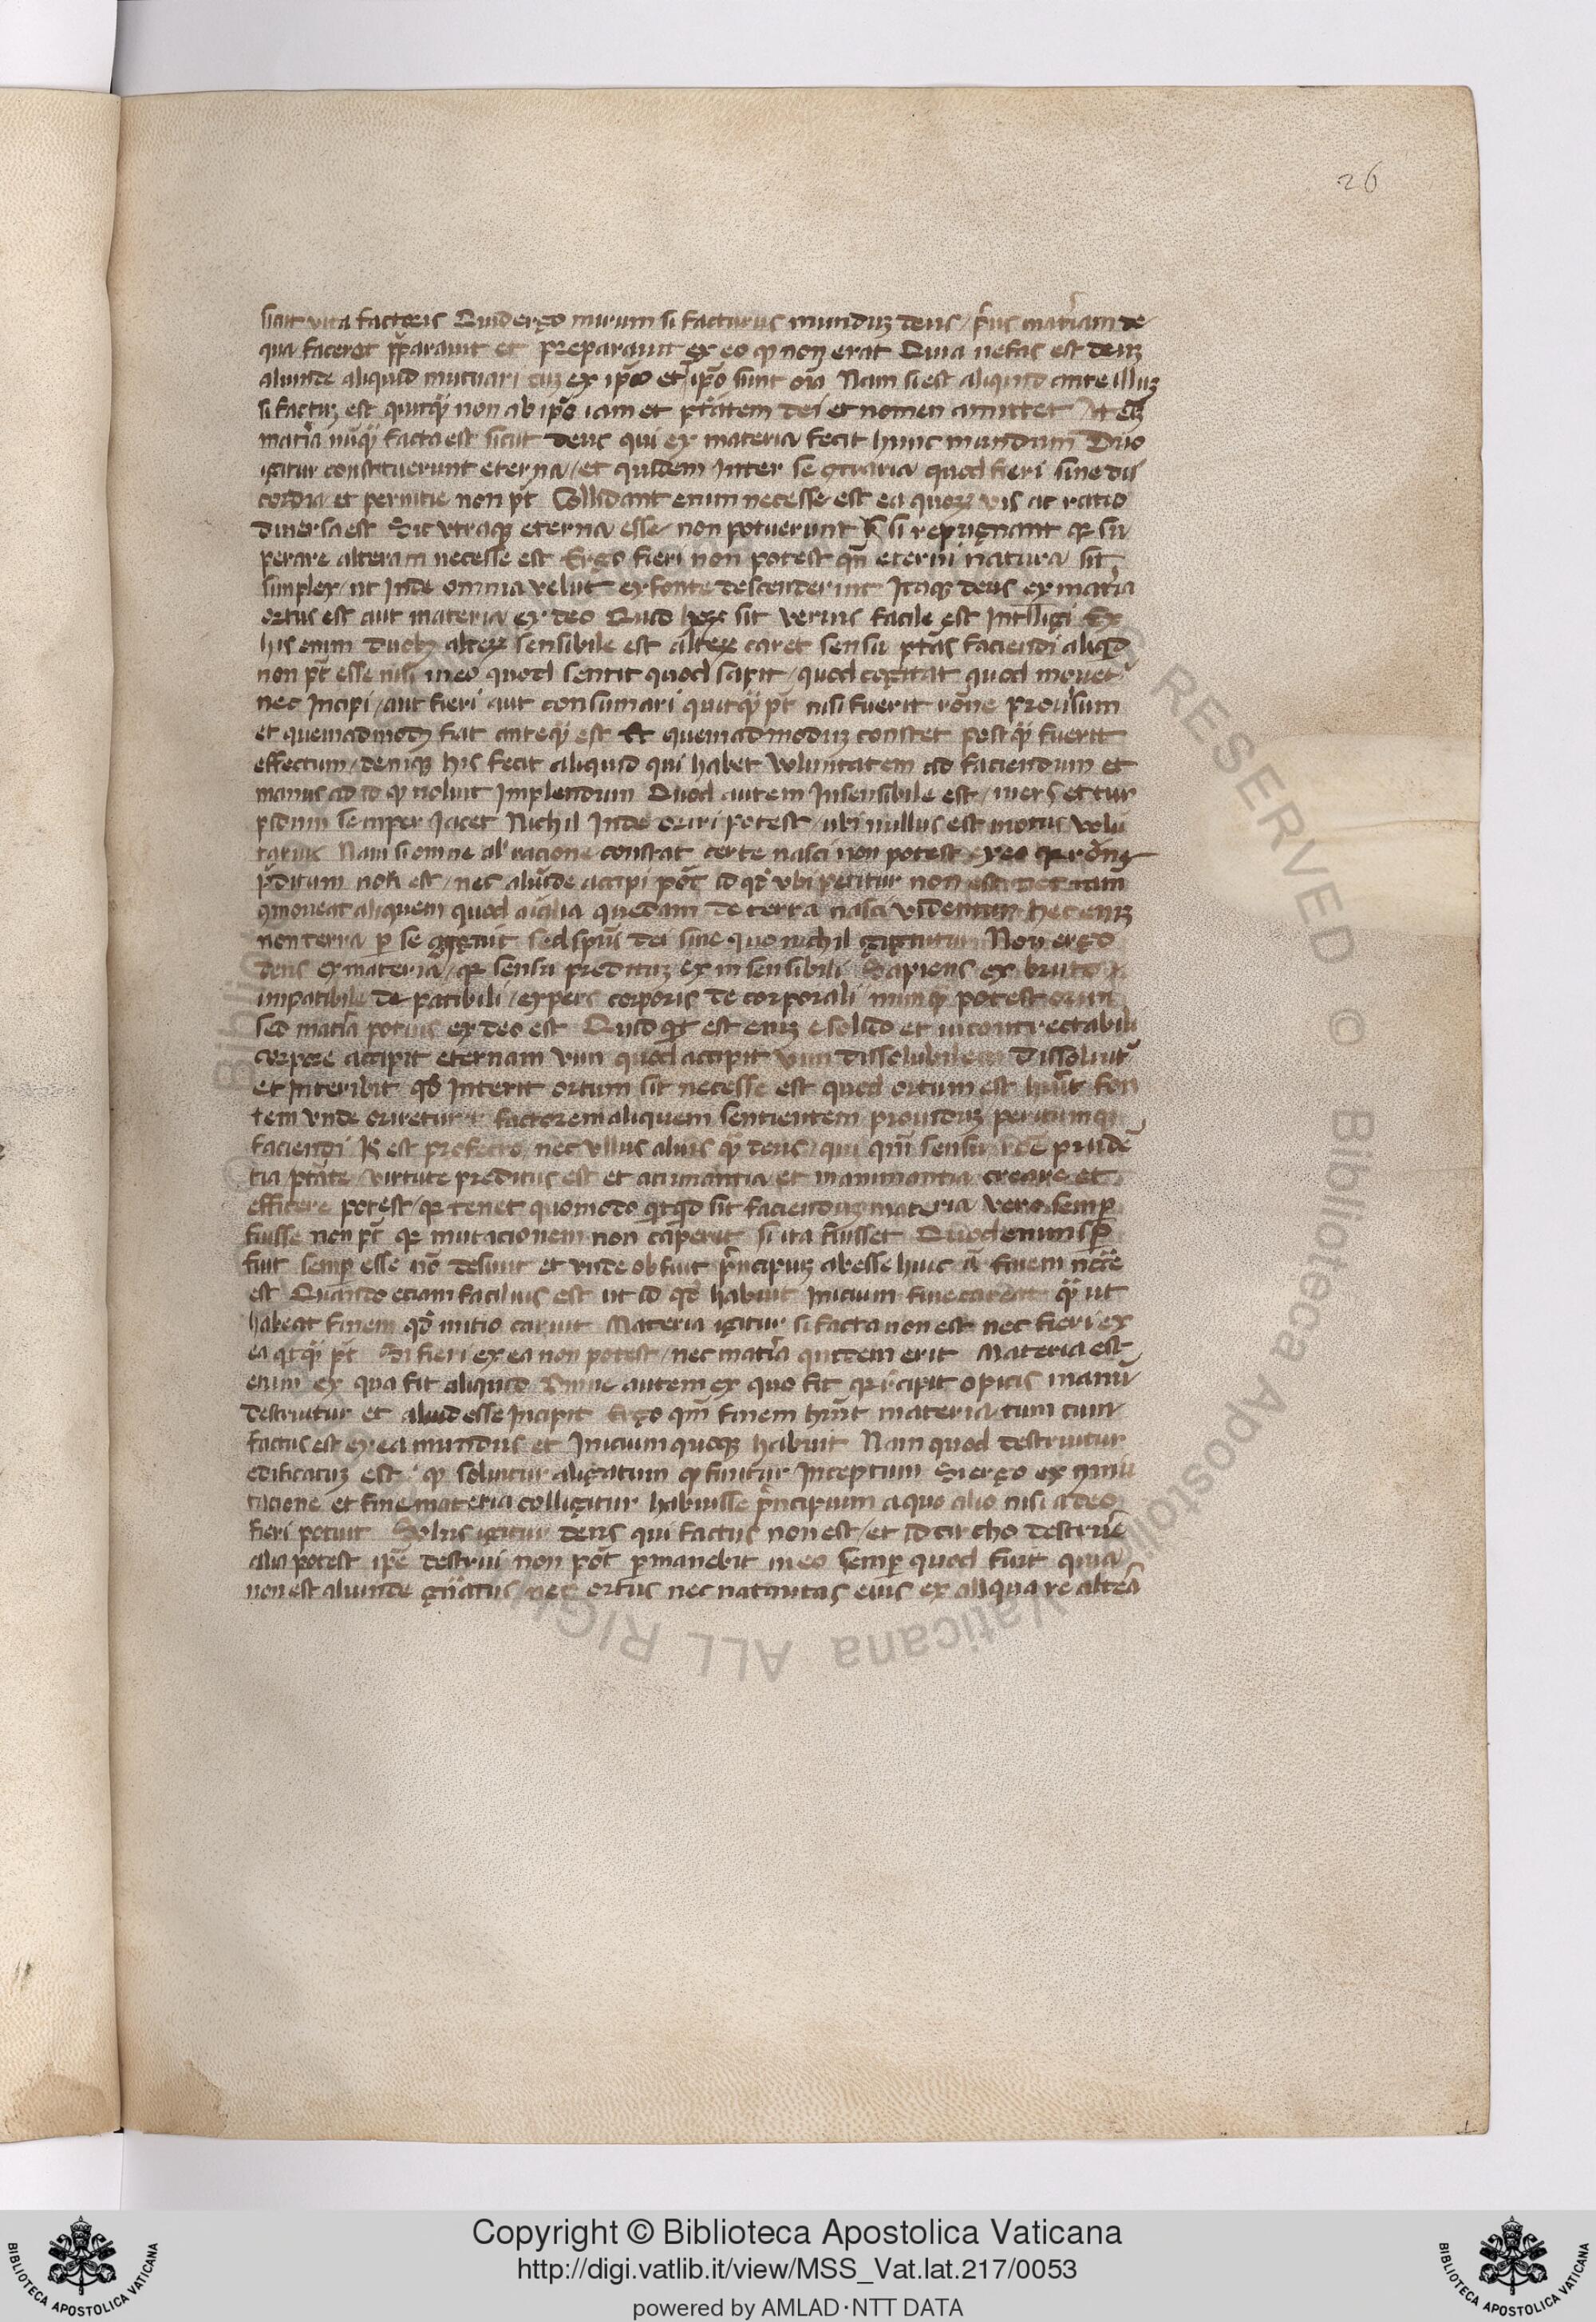 26
sicut vita factoris Quid ergo mirum si facturus munduz deus / p̄us mat̄iam de
qua faceret p̄parauit et preparauit ex eo qͦ non erat Quia nefas est deuz
aliunde aliquid mutuari cuz ex ip̄o et ip̄o sunt oīa Nam si est aliquid ante illuz
si factuz est quicq̄ non ab ip̄o iam et pt̄atem dei et nomen amittet At eīz
mat̄ia nūq̄ facta est sicut deus qui ex materia fecit hunc mundum Duo
igitur constituerunt eterna / et quidem inter se ꝯtraria quod fieri sine dis
cordia et pernitie non pt̄ Collidant enim necesse est ea quoꝝ vis at ratio
diuersa est Sic vtraqꝫ eterna esse non potuerunt si repugnant qꝫ su
perare alteram necesse est Ergo fieri non potest qn̄ eterni natura sit
simplex / ut inde omnia velut ex fonte descenderint Itaqꝫ deus ex mat̄ia
ortus est aut materia ex deo Quid hoꝝ sit verius facile est intelligi Ex
his enim duobꝫ alteꝝ sensibile est alteꝝ caret sensu pt̄as faciendi aliqͥd
non pt̄ esse nisi in eo quod sentit quod sapit / quod cogitat quod mouet
nec incipi / aut fieri aut consumari quitq̄ pt̄ nisi fuerit rōne prouisum
et quemadmodꝫ fiat anteq̄ est Et quemadmoduz constet postq̄ fuerit
effectum / deniqꝫ his fecit aliquid qui habet voluntatem ad faciendum et
manus ad id qͦ voluit implendum Quod autem insensibile est / iners et tur
pidum semper iacet Nichil inde oriri potest / ubi nullus est motus volū
tarius Nam si omne al̄ racione constat certe nasci non potest ex eo qꝫ rōne
p̄ditum non est / nec aliūde accipi pōt id qd̄ vbi petitur non est Nec tam̄
ꝯmoueat aliquem quod aīalia quedam de terra nasci videntur hec eniz
non terra ꝑ se gignit sed spūs dei sine quo nichil gignitur Non ergo
deus ex materia / qꝫ sensu predituz ex insensibili Sapiens ex bruto
impatibile de patibili / expers corporis de corporali nunq̄ potest oriri
sed mat̄ia potius ex deo est Quid qͥd est eniz e solido et incontrectabili
corpore accipit eternam vim quod accipit vim dissolubilem Dissoluit᷑
et interibit qd̄ interit ortum sit necesse est quod ortum est hūit fon
tem vnde oriretur factorem aliquem sentientem prouiduz peritumqꝫ
faciendi Is est profecto nec vllus alius q̄ deus / qui qm̄ sensu rōe prudē
tia pt̄ate virtute preditus est et animantia et inanimantia creare et
efficere potest / qꝫ tenet quomodo qͥcqͥd sit faciendum materia vero semꝑ
fuisse non pt̄ qꝫ mutacionem non caperet si ita fuisset Quod enim sꝑ
fuit semꝑ esse nō desinit et vnde obfuit p̄ncipuz abesse huic ā finem nēce
est Quando eciam facilius est ut id qd̄ habuit inicium fine careat q̄ ut
habeat finem qd̄ initio caruit Materia igitur si facta non est nec fieri ex
ea qͥcq̄ pt̄ Si fieri ex ea non potest / nec mat̄ia quidem erit Materia est
enim ex qua fit aliquid Omne autem ex quo fit qꝫ recipit opicis manū
destruitur et aliud esse incipit Ergo qm̄ finem hūit materia / tum cum
factus est ex ea mundus et inicium quoqꝫ habuit Nam quod destruitur
edificatuz est qͦ soluitur aligatum qͦ finitur inceptum Si ergo ex ꝯmu
tacione et fine materia colligitur habuisse p̄ncipium a quo alio nisi a deo
fieri potuit Solus igitur deus qui factus non est / et id circho destrue᷑
alia potest ip̄e destrui non pōt ꝑmanebit in eo semꝑ quod fuit quia
non est aliunde gn̄atus / nec ortus nec natiuitas eius ex aliqua re alteā
Copyright © Biblioteca Apostolica Vaticana
http://digi.vatlib.it/view/MSS_Vat.lat.217/0053
powered by AMLAD·NTT DATA
BIBLIOTECA APOSTOLICA VATICANA
BIBLIOTECA APOSTOLICA VATICANA